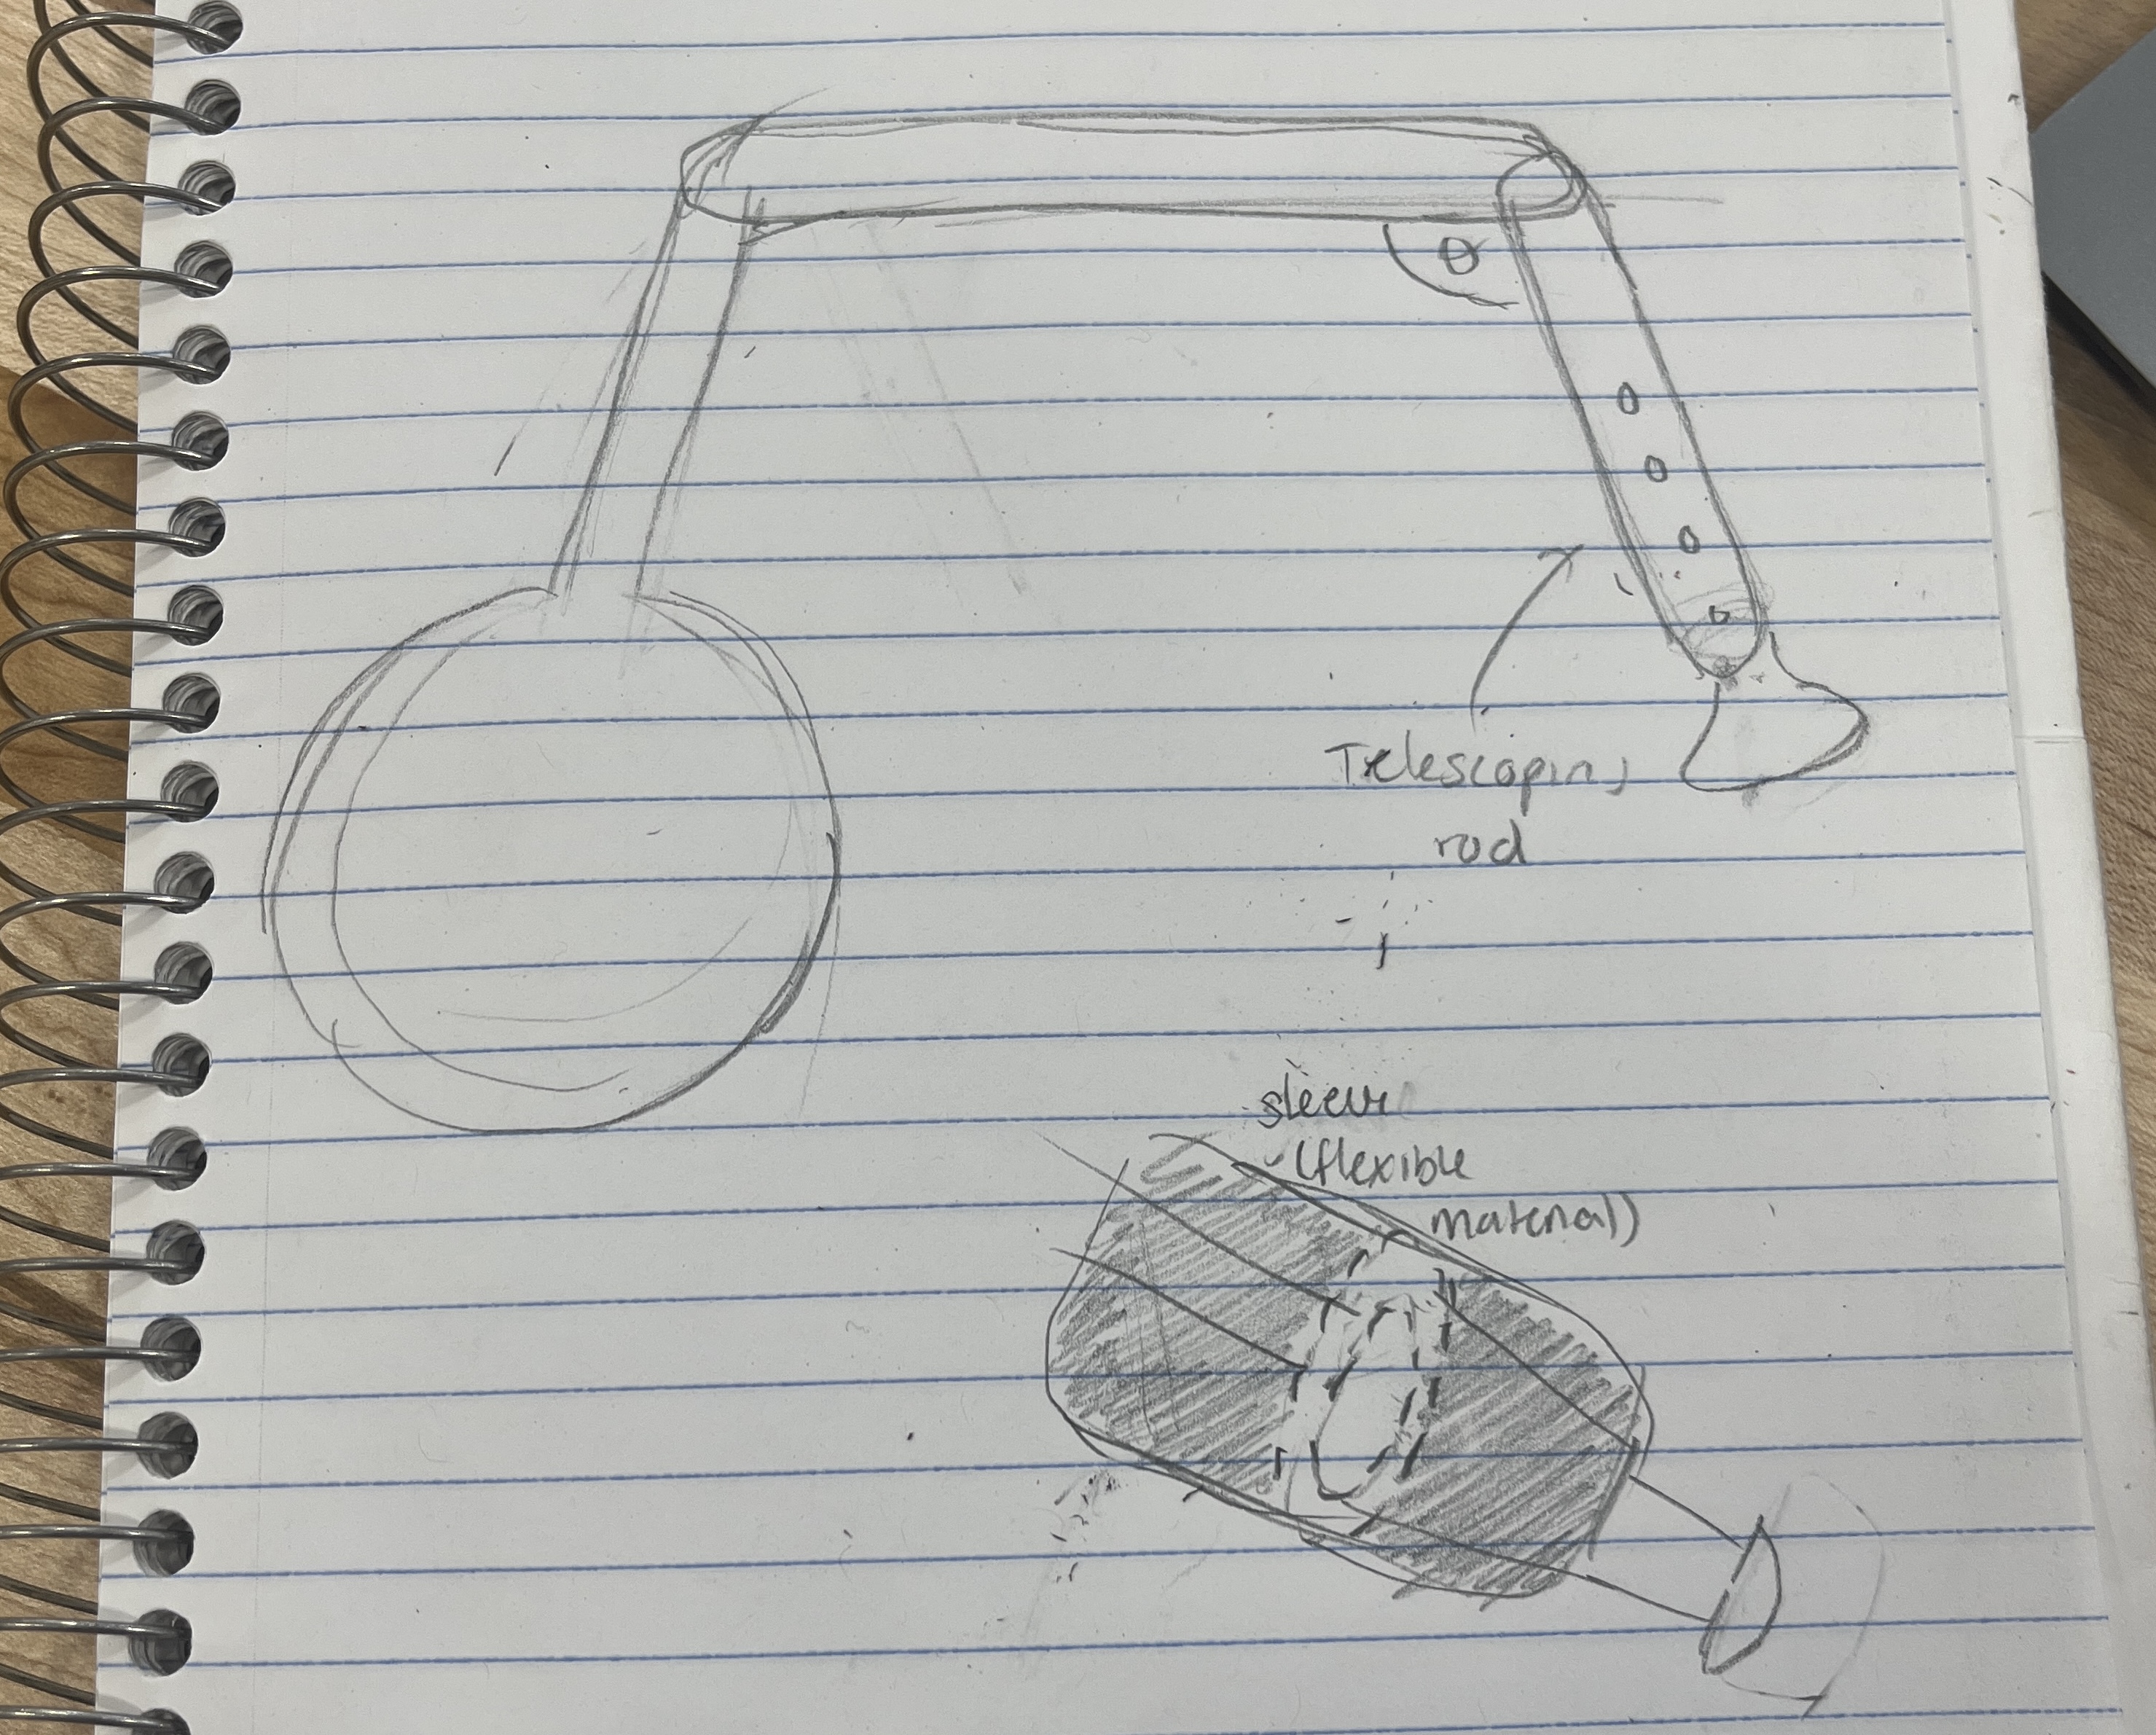 θ
Telescoping
rod
sleeve
(flexible
material)